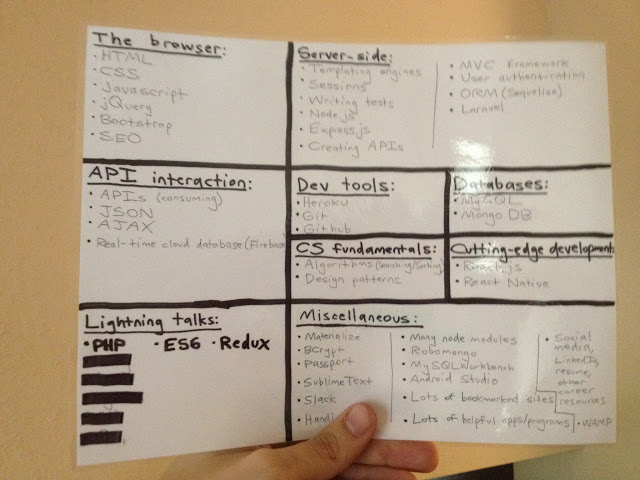 The browser:
· HTML
· CSS
· Javascript
· jQuery
· Bootstrap
· SEO
Server-side:
· Templating engines
· Sessions
· Writing tests
· Node.js
· Express.js
· Creating APIs
· MVC framework
· User authentication
· ORM (Sequelize)
· Laravel
API interaction:
· APIs (consuming)
· JSON
· AJAX
· Real-time cloud database (Firebase
Dev tools:
· Heroku
· Git
· Github
Databases:
· MySQL
· Mongo DB
CS fundamentals:
· Algorithms (Searching/Sorting)
· Design patterns
Cutting-edge development:
· React.js
· React Native
Lightning talks:
· PHP · ES6 · Redux
Miscellaneous:
· Materialize
· BCrypt
· Passport
· Sublime Text
· Slack
· Many node modules
· Robomongo
· MySQL Workbench
· Android Studio
· Lots of bookmarked sites
· Lots of helpful apps/programs
· Social
media,
LinkedIn,
resume,
other
career
resources
· WAMP